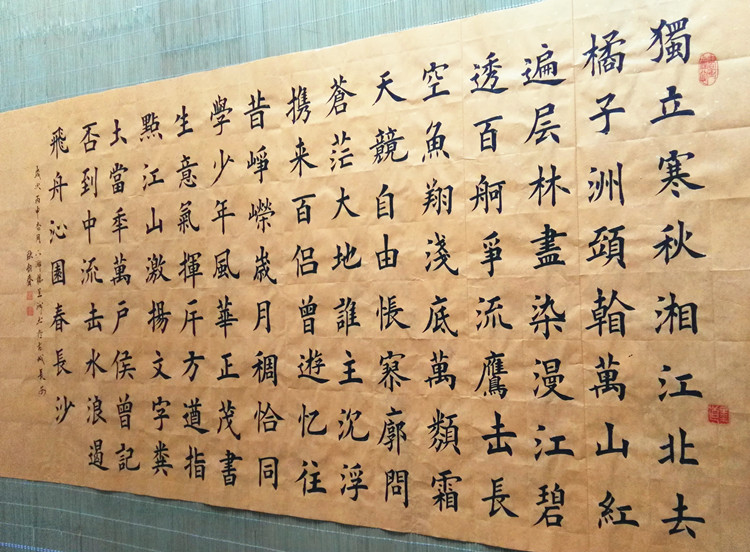 獨立寒秋湘江北去
橘子洲頭萬山紅
遍层林盡染漫江碧
透百舸爭流鷹击長
空魚翔淺底萬類霜
天競自由悵寥廓問
蒼茫大地誰主沉浮
携来百侣曾遊忆往
昔崢嶸歲月稠恰同
學少年風華正茂書
生意氣揮斥方遒指
點江山激揚文字糞
土當年萬户侯曾記
否到中流击水浪遏
飛舟沁園春長沙
歲次丙申